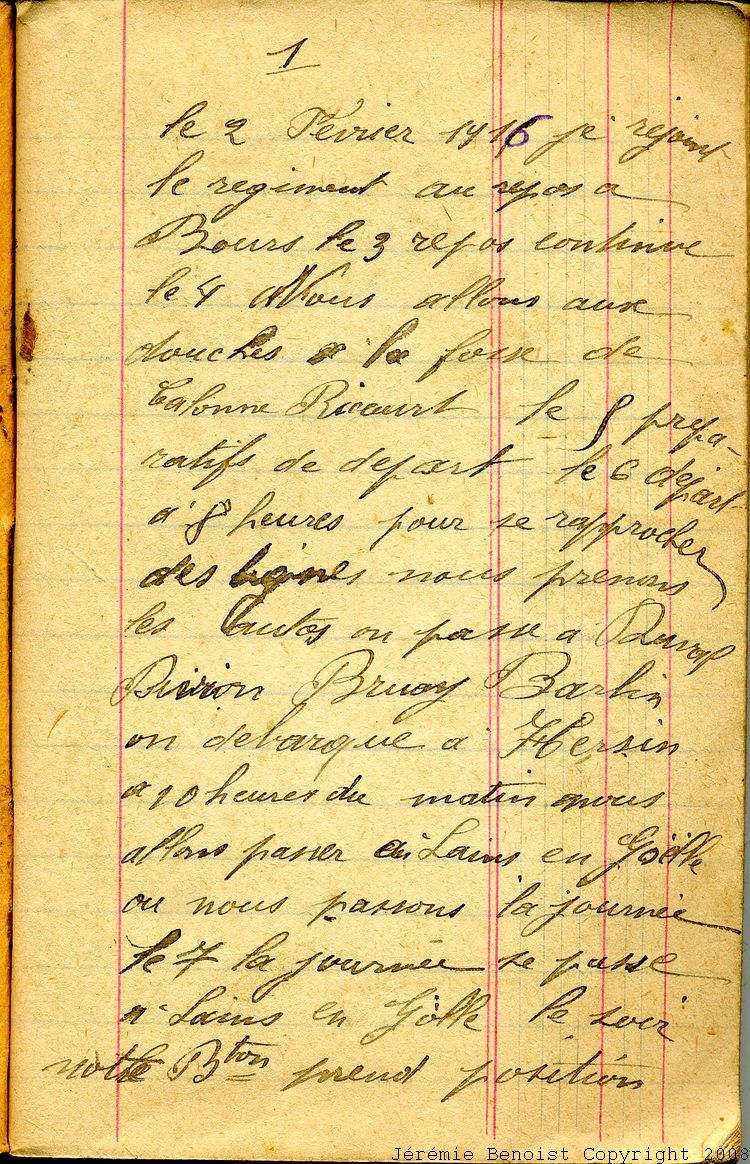 1
le 2 Février 1916 je rejoint
le regiment au repos a
Bours le 3 repos continue
le 4 Nous allons aux
douches a la fosse de
Calonne Ricourt le 5 prepa-
ratifs de depart le 6 départ
a 8 heures pour se rapprocher
des lignes nous prenons
les autos on passe a
Divion Bruay Barlin
on debarque a Hersin
a 10 heures du matin nous
allons passer a Sains en Goëlle
ou nous passons la journée
le 7 la journée se passe
a Sains en Gölle le soir
notre Bton prend position
Jérémie Benoist Copyright 2008